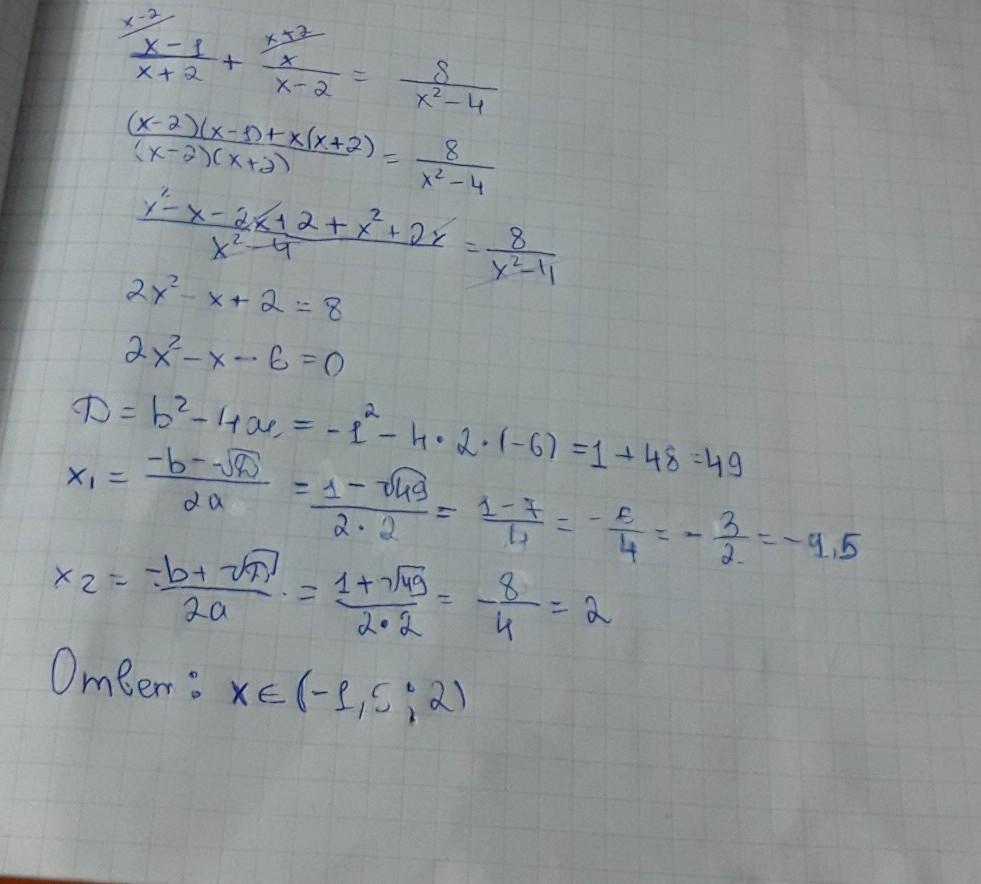 x-2/ x+2/
x-1/x+2 + x/x-2 = 8/x²-4
(x-2)(x-1)+x(x+2)/(x-2)(x+2) = 8/x²-4
x²-x-2x+2+x²+2x/x²-4 = 8/x²-4
2x²-x+2=8
2x²-x-6=0
D=b²-4ac=-1²-4·2·(-6)=1+48=49
x₁=-b-√D/2a=1-√49/2·2=1-7/4=-6/4=-3/2=-1,5
x₂=-b+√D/2a=1+√49/2·2=8/4=2
Ответ: x∈(-1,5;2)